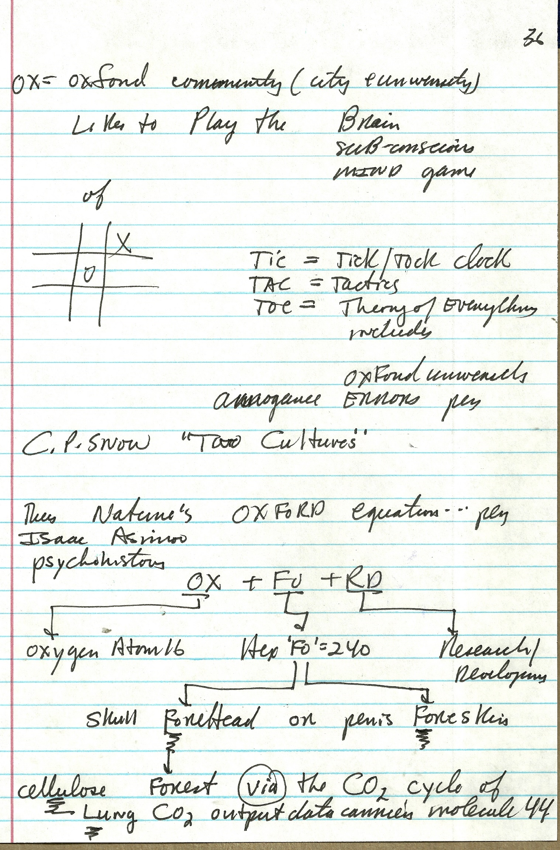 36
OX = oxford community (city & university)
Likes to Play the Brain
sub-conscious
MIND game
of
X
O
TIC = Tick/Tock clock
TAC = Tactics
TOE = Theory of Everything
includes
OXFord university
arrogance ERRORS per
C.P. SNOW "Two Cultures"
Thus Nature's OXFORD equation... per
Isaac Asimov
psychohistory
OX + FO + RD
oxygen Atom 16 Hex 'FO' = 240 Research/
Developing
Skull ForeHead or penis Foreskin
cellulose Forest via the CO2 cycle of
Lung CO2 output data carrier molecule 44